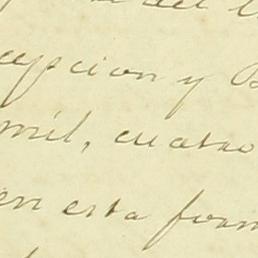 del
cepcion y
mil, cuatro
en esta form